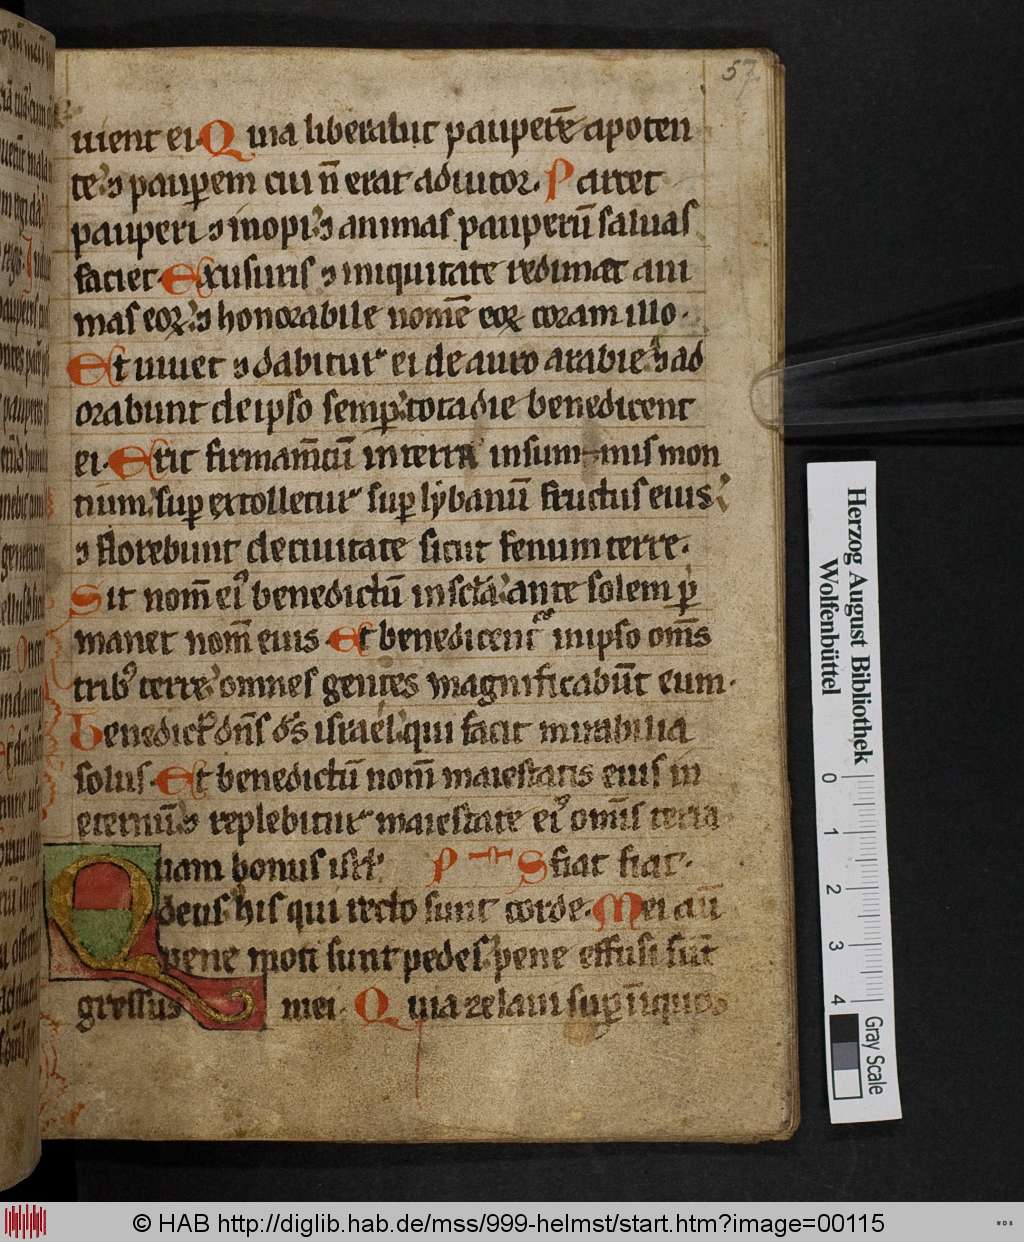 57
uient ei. Quia liberabit pauperē a poten
te ⁊ pauperem cui n̄ erat adiutor. Parcet
pauperi ⁊ inopi ⁊ animas pauperū saluas
faciet. Ex usuris ⁊ iniquitate redimet ani
mas eoꝝ ⁊ honorabile nomē eoꝝ coram illo.
Et uiuet ⁊ dabitur ei de auro arabie ⁊ ad
orabunt de ipso semꝑ tota die benedicent
ei. Erit firmam̄tū in terra in summis mon
tium suꝑ extolletur suꝑ lybanū fructus eius
⁊ florebunt de ciuitate sicut fenum terre.
Sit nom̄ eiꝰ benedictū in sc̄la ante solem ꝑ
manet nom̄ eius. Et benedicentᷣ in ipso om̄s
tribꝰ terre omnes gentes magnificabūt eum.
Benedictꝰ dn̄s ds̄ israel qui facit mirabilia
solus. Et benedictū nom̄ maiestatis eius in
eternū ⁊ replebitur maiestate eiꝰ om̄is terra
fiat fiat.
Quam bonus isrl̄ PS
deus his qui recto sunt corde. Mei aū
pene moti sunt pedes pene effusi sūt
gressus mei. Quia zelaui suꝑ īiquos
Herzog August Bibliothek
Wolfenbüttel
0 1 2 3 4
Gray Scale
© HAB http://diglib.hab.de/mss/999-helmst/start.htm?image=00115